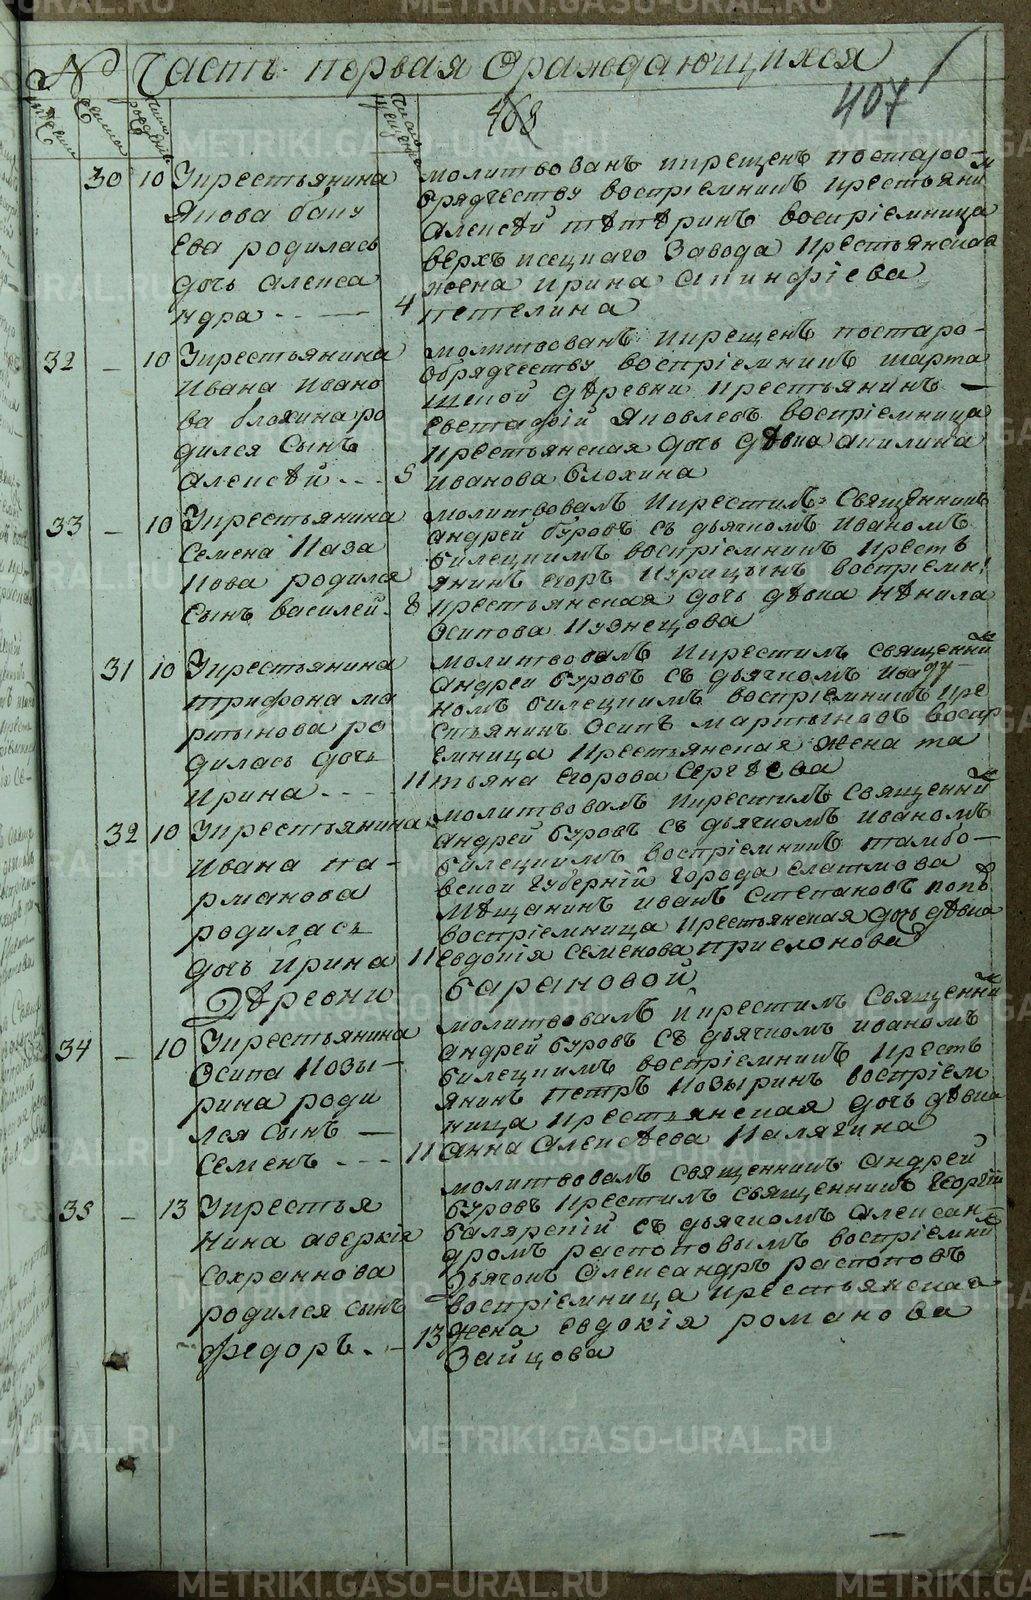 METRIKI.GASO-URAL.RU
№ Часть первая Ораждающихся
407
468
30 10 Укрестьянина
Якова баку
ева родилась
дочь алекса
ндра
4
молитвованъ икрещенъ постаро-
обрядчеству воспріемникъ крестьянин
Алексѣй тѣтѣринъ воспріемница
верхъ исецкаго Завода Крестьянская
жена Ирина Акинфіева
петелина
32 – 10 Укрестьянина
Ивана Ивано
ва блохина ро
дился сынъ
алексѣй
5
молитвованъ икрещенъ постаро-
обрядчеству воспріемникъ шарта
шской дѣревни крестьянинъ
евстафій Яковлевъ воспріемница
крестьянская дочь дѣвка акилина
иванова блохина
33 – 10 Укрестьянина
семена Каза
кова родился
сынъ василей
8
молитвовалъ Икрестилъ Священникъ
андрей буровъ съ дьячкомъ иваномъ
билецкимъ воспріемникъ крестъ
янинъ егоръ Курицынъ воспріемн:
крестьянская дочь дѣвка нѣнила
осипова Кузнецова
31 10 Укрестьянина
трифона ма
ртынова ро
дилась дочь
ирина
11
молитвовалъ икрестилъ священник
андрей буровъ съ дьячкомъ ива
номъ билецкимъ воспріемникъ кре
стьянинъ осипъ мартыновъ воспр
емница Крестьянская жена та
тьяна егорова сергѣева
32 10 Укрестьянина
ивана па-
рманова
родилась
дочь ирина
11
молитвовалъ икрестилъ священник
андрей буровъ съ дьячкомъ иваномъ
билецкимъ воспріемникъ тамбо-
вской губерній города елатмова
мѣщанинъ иванъ степановъ попъ
воспріемница крестьянская дочь дѣвка
евдокія семенова прислонова
Дѣревни барановой
34 – 10 Укрестьянина
осипа Козы-
рина роди
лся сынъ
семенъ
11
молитвовалъ икрестилъ священник
андрей буровъ съ дьячкомъ иваномъ
билецкимъ воспріемникъ кресть
янинъ петръ Козыринъ воспріем
ница крестьянская дочь дѣвка
анна алексѣева Калягина
35 – 13 Укрестья
нина аверкія
сохраннова
родился сынъ
федоръ
13
молитвовалъ священникъ андрей
буровъ крестилъ священникъ георгій
балярскій съ дьячкомъ алексан-
дромъ распоповымъ воспріемник
Дьячокъ александръ распоповъ
воспріемница крестьянская
жена евдокія романова
Зайцова